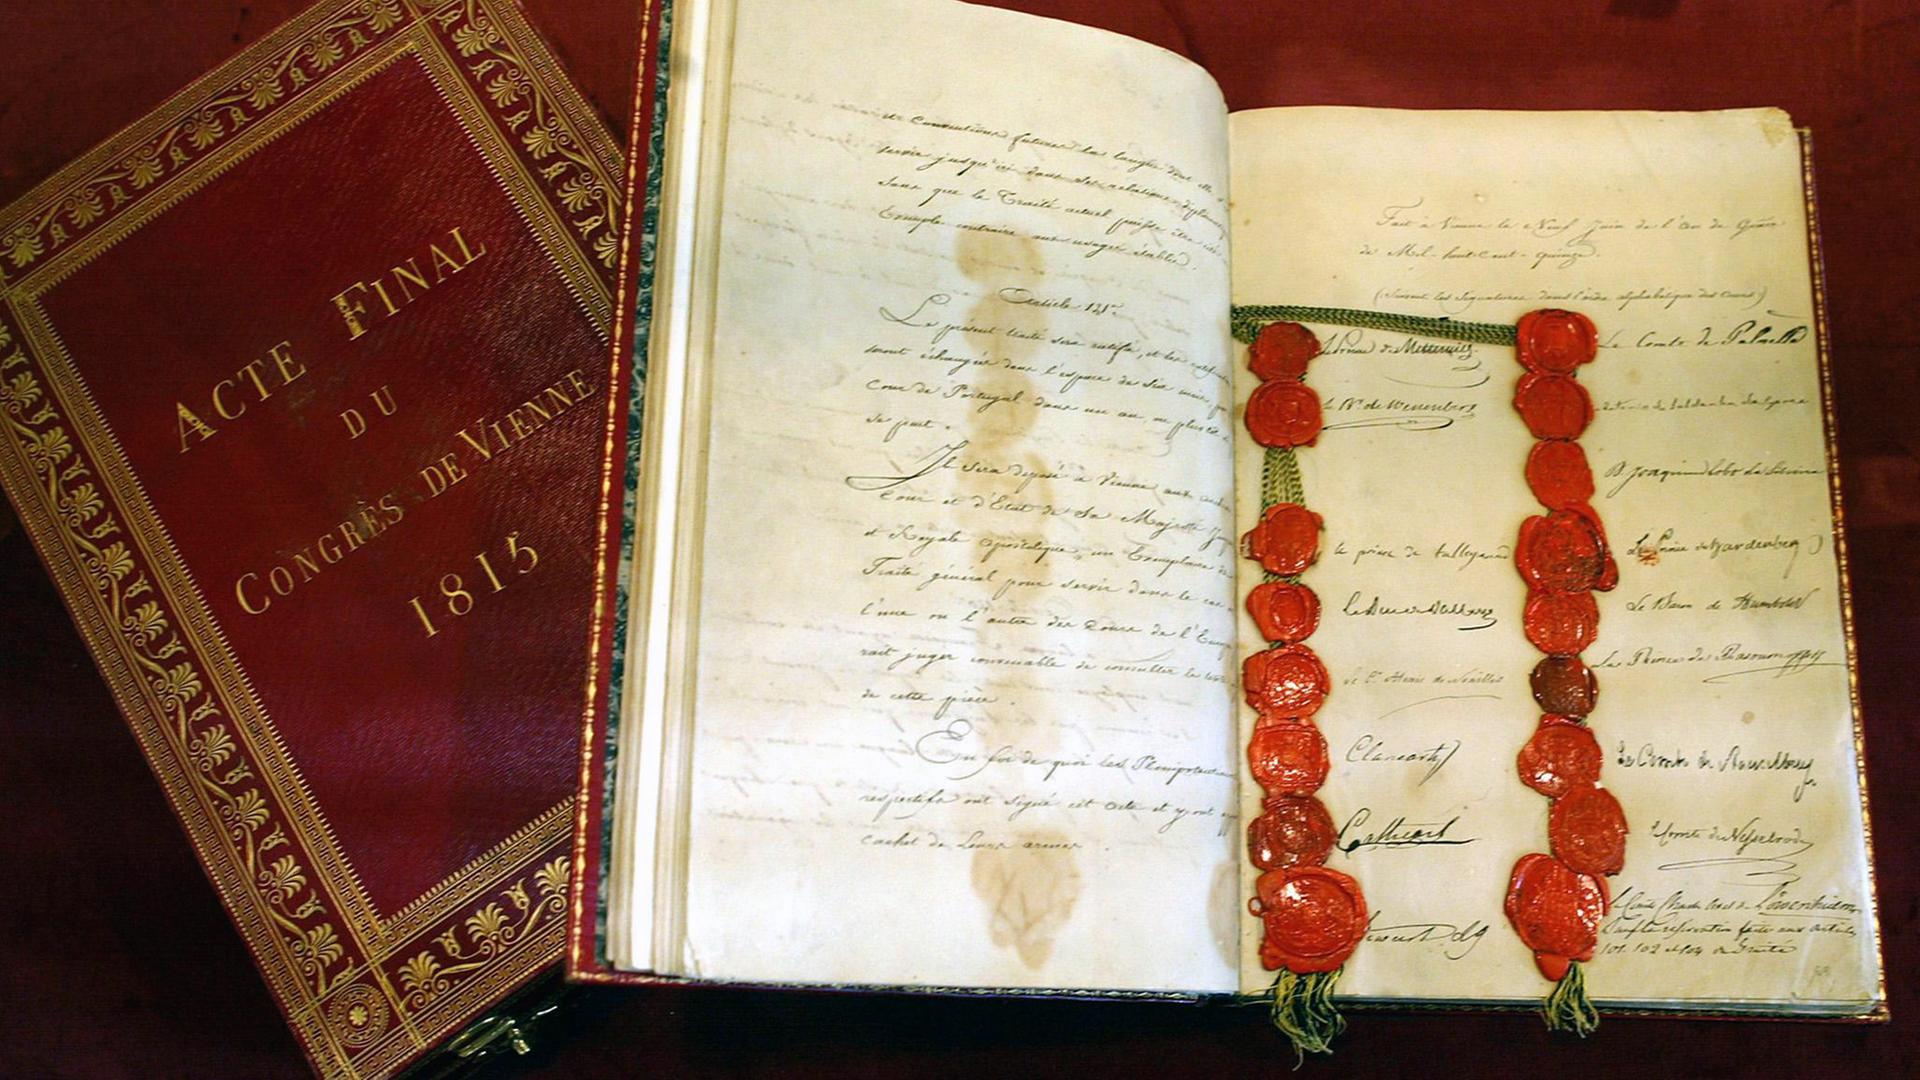 ACTE FINAL
DU
CONGRÈS DE VIENNE
1815
et Conventions futures la langue dont elle
servir jusqu'ici dans ses relations diplom
sans que le Traité actuel puisse être cité
Exemple contraire aux usages établis.
Article 121.
Le présent traité sera ratifié, et les ratific
seront échangées dans l'espace de six mois, par
Cour de Portugal dans un an, ou plutôt si
se peut.
Il sera déposé à Vienne aux
Cour et d'État de Sa Majesté
et Royale apostolique, un Exemplaire de
Traité général pour servir dans le cas
l'une ou l'autre des Cours de l'Europe
rait juger convenable de consulter le texte
de cette pièce.
En foi de quoi les Plénipotentiaires
respectifs ont signé cet acte et y ont
cachet de Leurs armes.
Fait à Vienne le Neuf Juin de l'an de Grâce
de Mil-huit-cent-quinze.
(Suivent les Signatures dans l'ordre alphabétique des Cours)
le Prince de Metternich
le Bn. de Wessenberg
le prince de talleyrand
Le Duc de Dalberg
le Cte. Alexis de Noailles
Clancarty
Cathcart
Stewart
Le Comte de Palmella
Antonio de Saldanha da Gama
D Joaquim Lobo da Silveira
Le Prince de Hardenberg
Le Baron de Humboldt
Le Prince de Rasoumoffsky
Le Comte de Rasoumoffsky
Le Comte de Nesselrode
Le Comte Charles Axel de Löwenhielm
Sauf la réservation faite aux articles
101. 102 et 104 du Traité